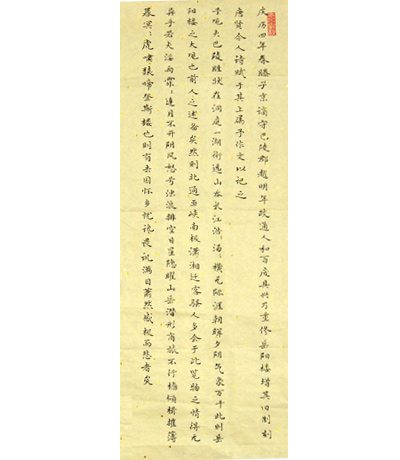 庆历四年春滕子京谪守巴陵郡越明年政通人和百废具兴乃重修岳阳楼增其旧制刻
唐贤今人诗赋于其上属予作文以记之
予观夫巴陵胜状在洞庭一湖衔远山吞长江浩々汤々横无际涯朝晖夕阴气象万千此则岳
阳楼之大观也前人之述备矣然则北通巫峡南极潇湘迁客骚人多会于此览物之情得无
异乎若夫淫雨霏々连月不开阴风怒号浊浪排空日星隐曜山岳潜形商旅不行樯倾楫摧薄
暮冥々虎啸猿啼登斯楼也则有去国怀乡忧谗畏讥满目萧然感极而悲者矣